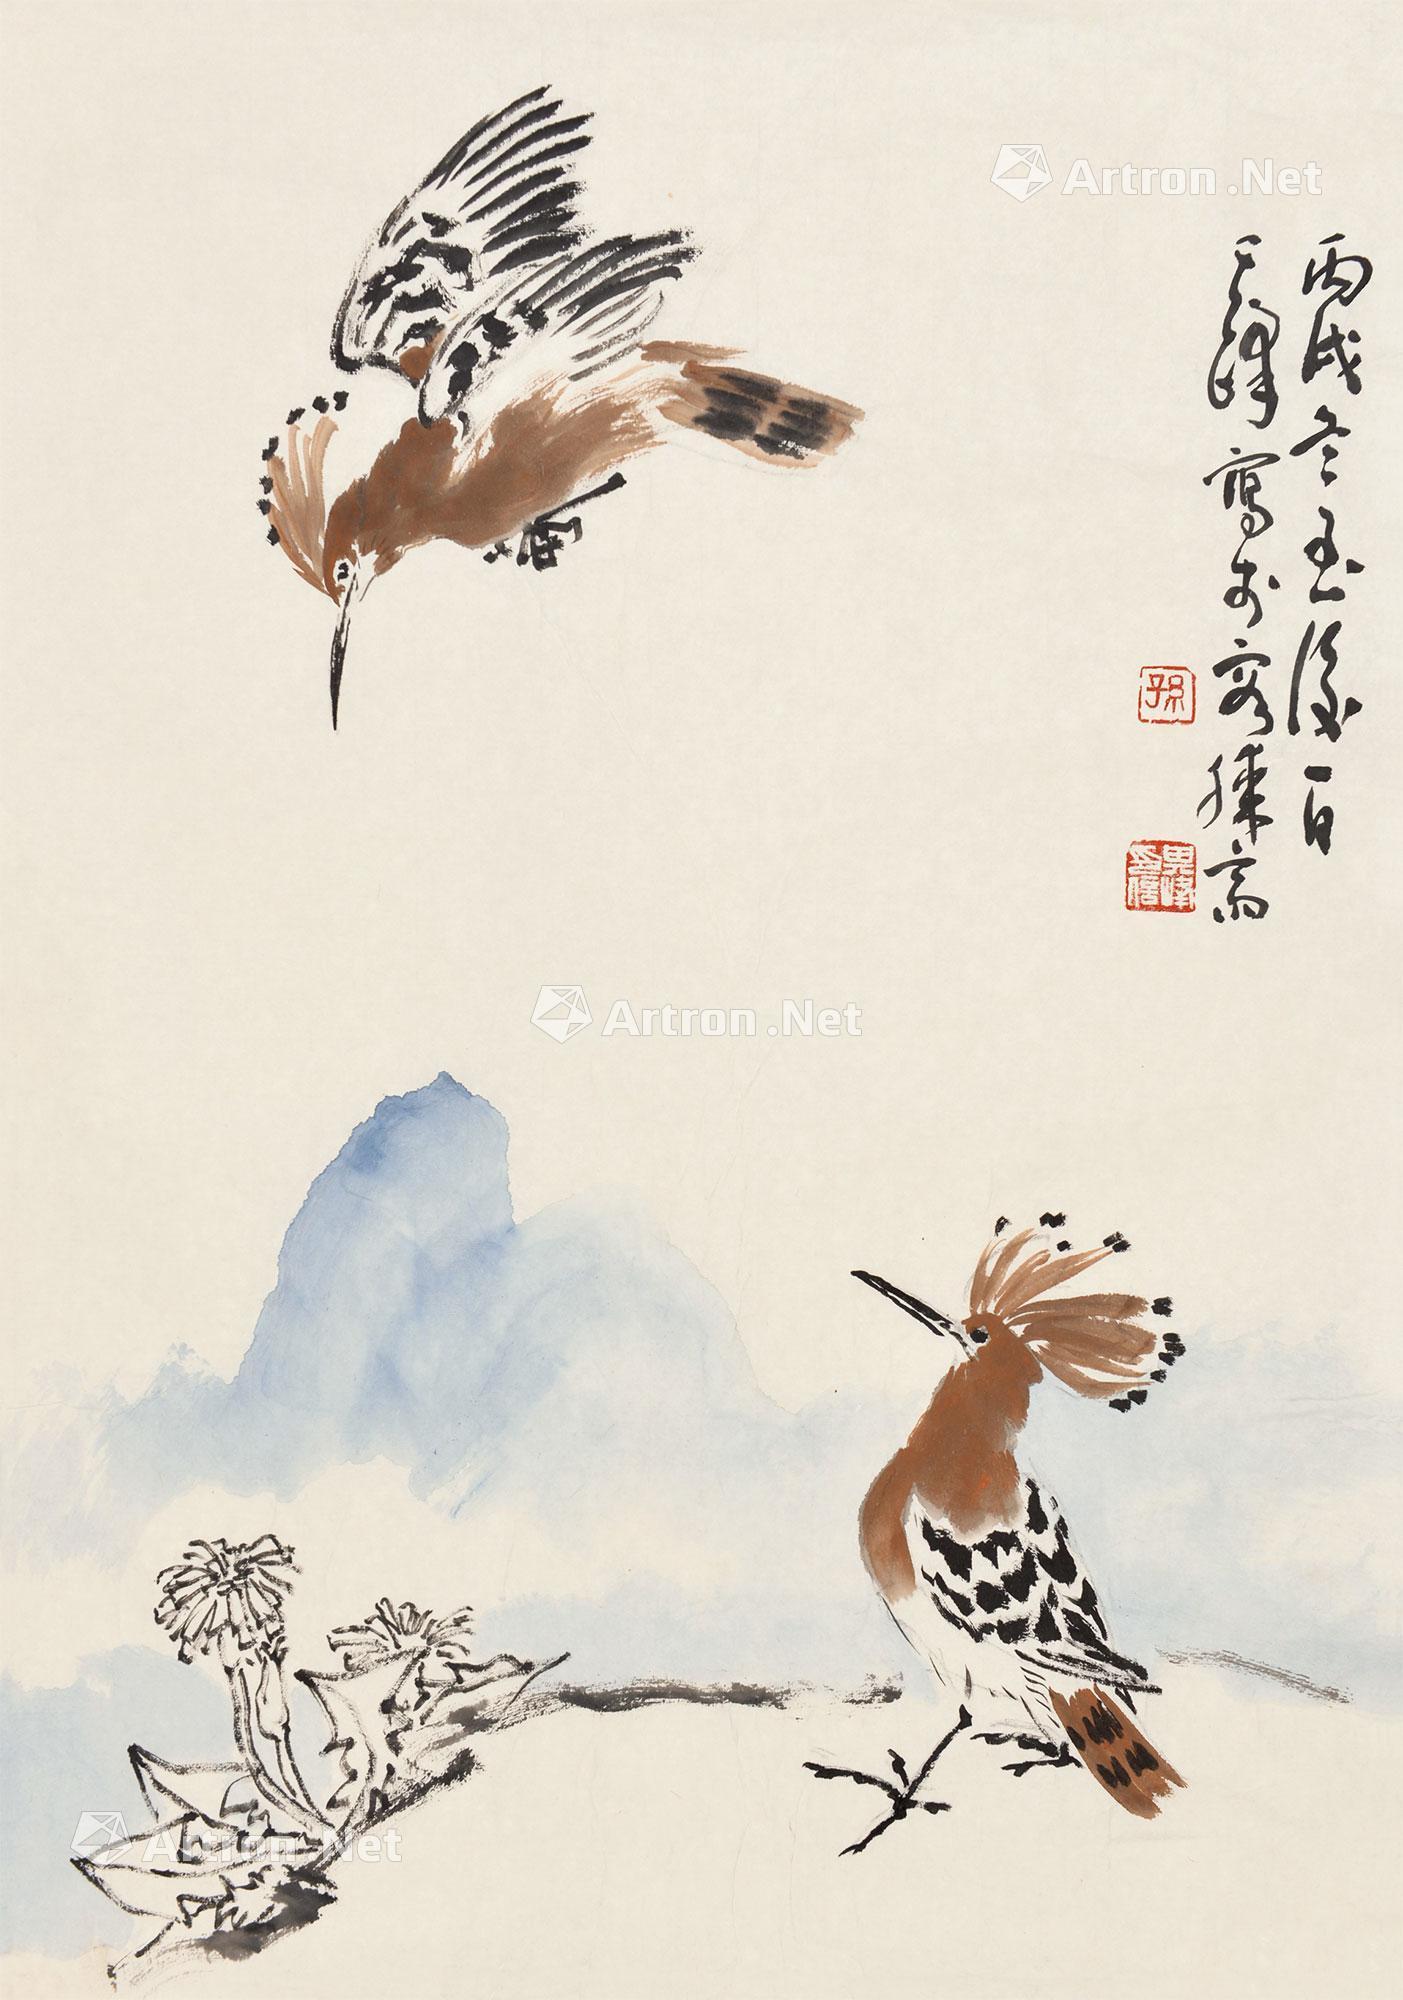 Artron.Net
丙戌冬至後一日
其峰寫於容膝齋
孫
Artron.Net
Artron.Net